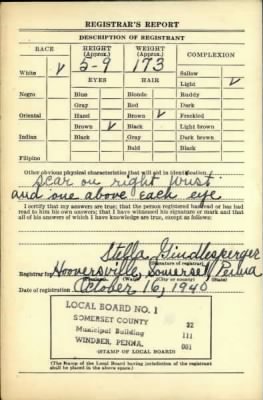 REGISTRAR'S REPORT
DESCRIPTION OF REGISTRANT
RACE HEIGHT (Approx.) WEIGHT (Approx.) COMPLEXION
5-9 173
White ✓ Sallow
EYES HAIR Light ✓
Negro Blue Blonde Ruddy
Gray Red Dark
Oriental Hazel Brown ✓ Freckled
Brown ✓ Black Light brown
Indian Black Gray Dark brown
Bald Black
Filipino
Other obvious physical characteristics that will aid in identification
Scar on right wrist
and one above each eye
I certify that my answers are true; that the person registered has read or has had
read to him his own answers; that I have witnessed his signature or mark and that
all of his answers of which I have knowledge are true, except as follows:
Stella Gindlesperger
(Signature of registrar)
Registrar for Hooversville, Somerset, Penna
(City or county) (State)
Date of registration October 16, 1940
LOCAL BOARD NO. 1
SOMERSET COUNTY 32
Municipal Building 111
WINDBER, PENNA. 001
(STAMP OF LOCAL BOARD)
(The stamp of the Local Board having jurisdiction of the registrant
shall be placed in the above space.)